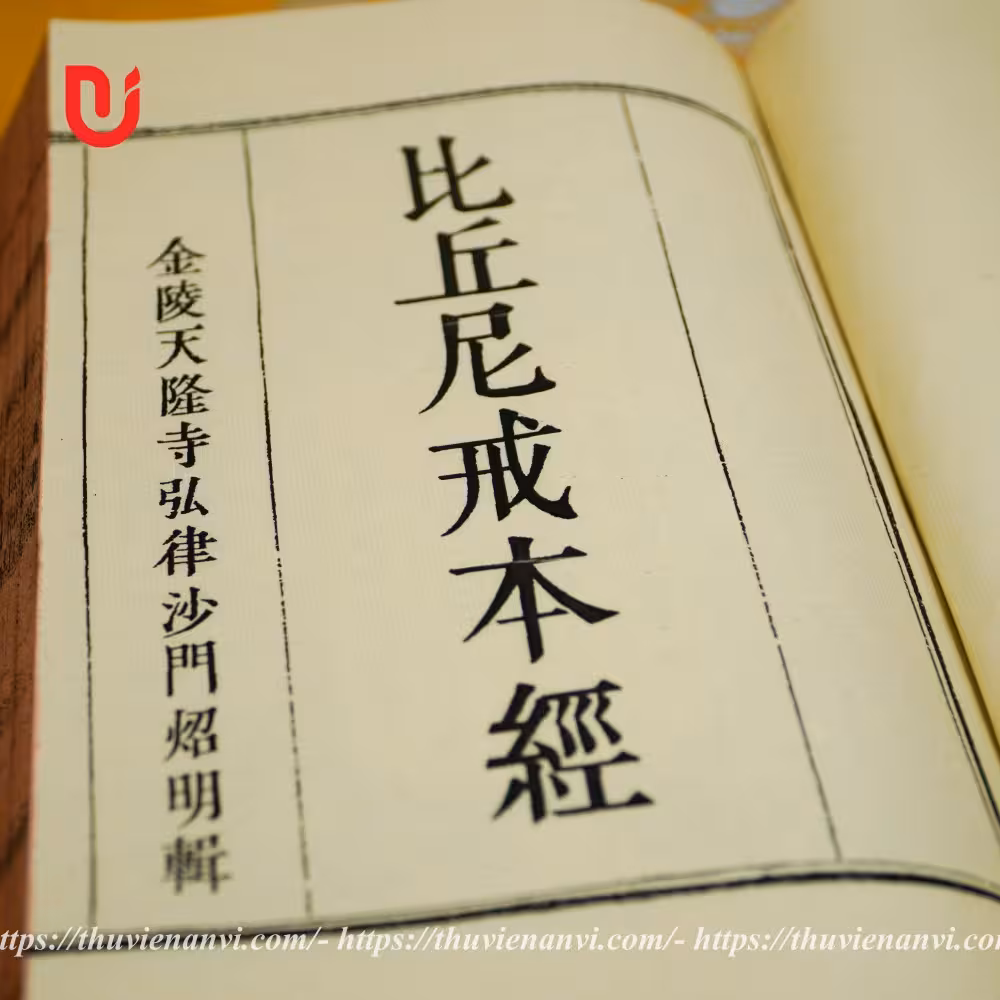 比丘尼戒本經
金陵天隆寺弘律沙門炤明輯
https://thuvienanvi.com/- https://thuvienanvi.com/- https://thuvienanvi.com/